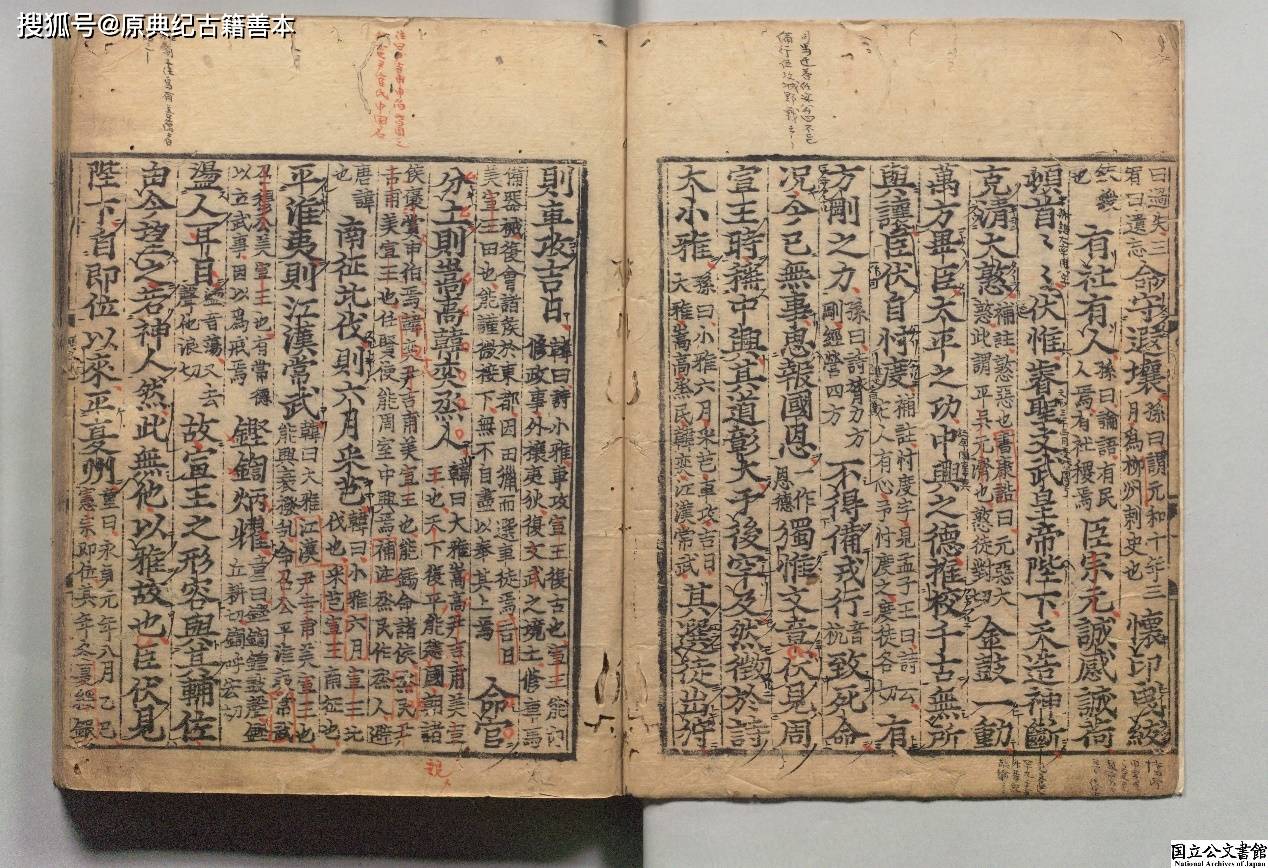 搜狐号@原典纪古籍善本
曰過失三宥曰遺忘 命守遐壤 孫曰謂元和十年三月為柳州刺史也 懷印曳紱
紱綬也 有社有人 孫曰論語有民人焉有社稷焉 臣宗元誠感誠荷
頓首〻〻伏惟睿聖文武皇帝陛下天造神斷
克清大憝 補註憝惡也書康誥曰元惡大憝此謂平吳元濟也憝徒對切 金鼓一動
萬方畢臣太平之功中興之德推校千古無所
與讓臣伏自忖度 補註忖度字見孟子王曰詩云他人有心予忖度之度徒各切 有
方剛之力 孫曰詩膂力方剛經營四方 不得備戎行 音杭 致死命
况今已無事思報國恩 一作恩德 獨惟文章伏見周
宣王時稱中興其道彰大于後罕及然徵於詩
大小雅 孫曰小雅六月采芑車攻吉日大雅嵩高烝民韓奕江漢常武 其選徒出狩
則車攻吉日 韓曰詩小雅車攻宣王復古也宣王能內修政事外攘夷狄復文武之境土修車馬
備器械復會諸侯於東都因田獵而選車徒焉吉日美宣王田也能謹微接下無不自盡以奉其上焉 命官
分土則嵩高韓奕烝人 韓曰大雅嵩高尹吉甫美宣王也天下復平能建國親諸
侯褒賞申伯焉韓奕尹吉甫美宣王也能錫命諸侯烝民尹吉甫美宣王也任賢使能周室中興焉補注烝民作烝人避
唐諱也 南征北伐則六月采芑 韓曰小雅六月宣王北伐也采芑宣王南征也
平淮夷則江漢常武 韓曰大雅江漢尹吉甫美宣王也能興衰撥亂命召公平淮夷常武
召穆公美宣王也有常德以立武事因以爲戒焉 鏗鍧炳耀 童曰鏗鍧鍾鼓聲鏗丘耕切鍧呼宏切
盪人耳目 盪音蕩又去聲他浪切 故宣王之形容與其輔佐
由今望之若神人然此無他以雅故也臣伏見
陛下自即位以來平夏州 童曰永貞元年八月乙巳憲宗即位其年冬夏綏銀
国立公文書館
National Archives of Japan